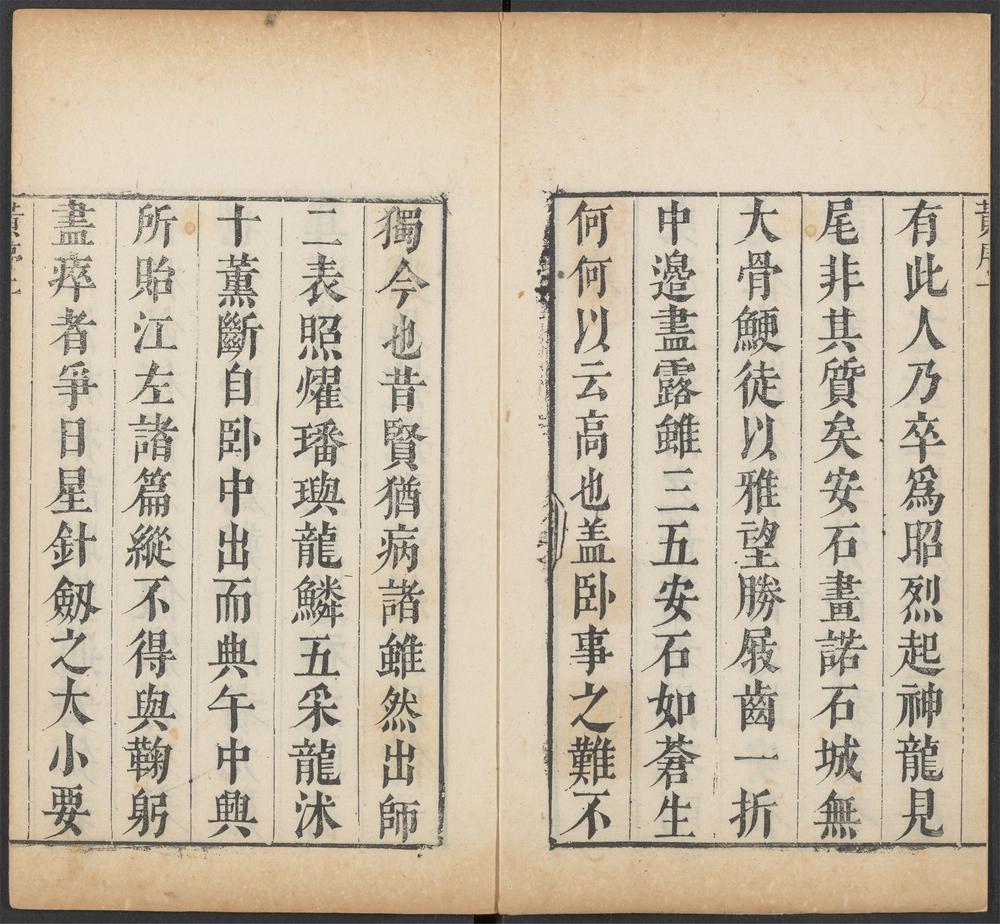 有此人乃卒爲昭烈起神龍見
尾非其質矣安石畫諾石城無
大骨鯁徒以雅望勝屐齒一折
中邉盡露雖三五安石如蒼生
何何以云高也盖卧事之難不
獨今也昔賢猶病諸雖然出師
二表照燿璠璵龍鱗五采龍沫
十薰斷自卧中出而典午中興
所貽江左諸篇縱不得與鞠躬
盡瘁者爭日星針劔之大小要